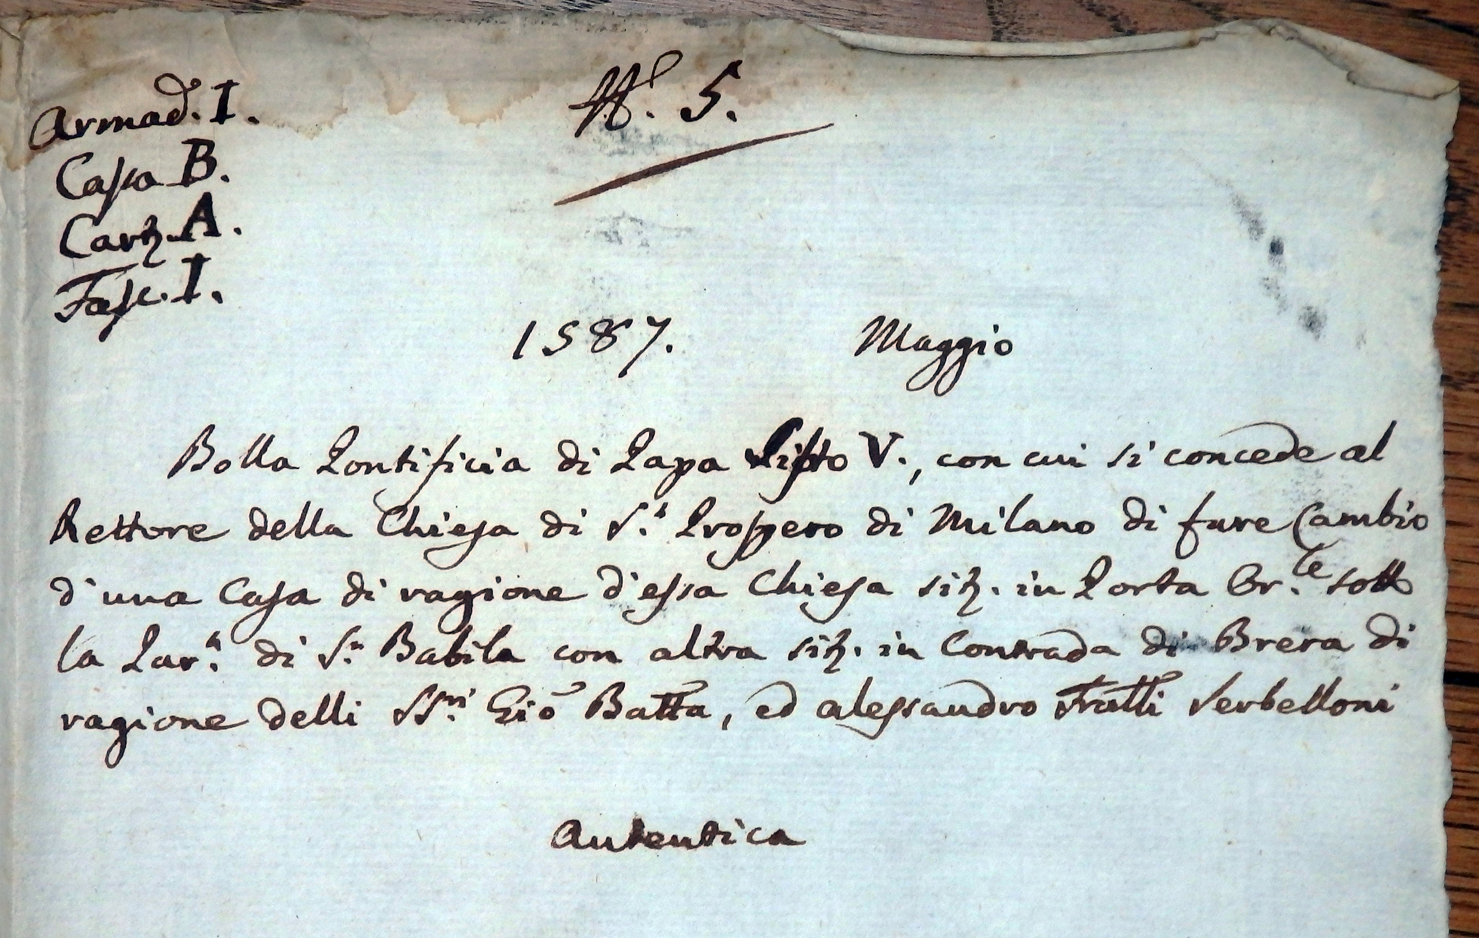 Armad. I.
N. 5.
Cassa B.
Cart. A.
Fasc. I.
1587. Maggio
Bolla Pontificia di Papa Sisto V., con cui si concede al
Rettore della Chiesa di S.t Prospero di Milano di fare Cambio
d'una Casa di ragione d'essa Chiesa sit. in Porta Or.le sotto
la Par.a di S.n Babila con altra sit. in Contrada di Brera di
ragione delli SS.ri Gio Batta, ed Alessandro Fratelli Serbelloni
Autentica